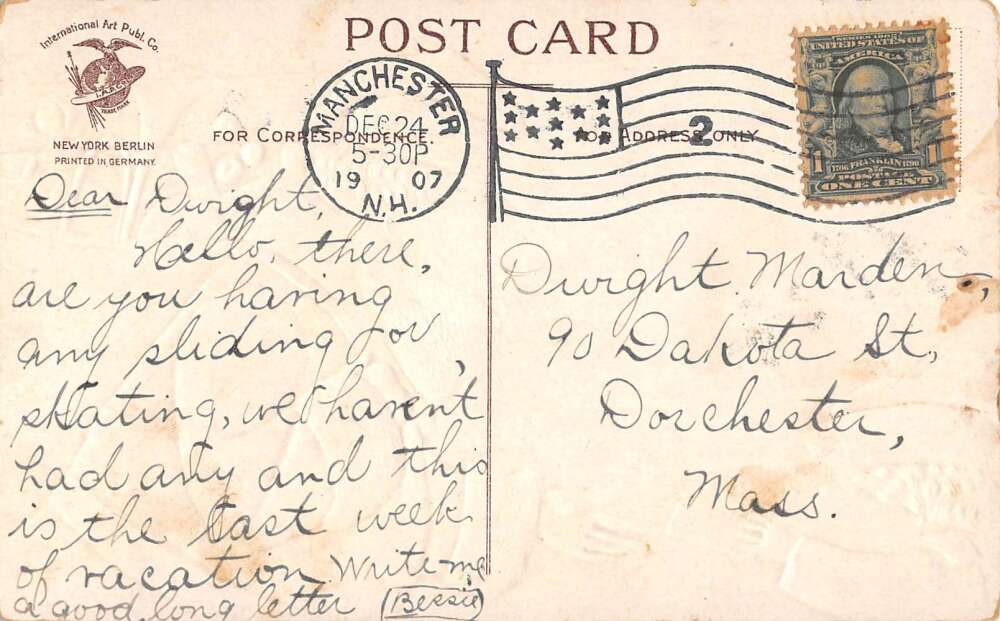 POST CARD
International Art Publ. Co.
NEW YORK BERLIN
PRINTED IN GERMANY.
FOR CORRESPONDENCE.
FOR ADDRESS ONLY
MANCHESTER
DEC 24
5-30P
19 07
N.H.
2
SERIES 1902
UNITED STATES OF
AMERICA
1 1706 FRANKLIN 1790 1
POSTAGE
ONE CENT
Dear Dwight,
Hello, there,
are you having
any sliding or
skating, we haven't
had any and this
is the last week
of vacation. Write me
a good long letter (Bessie)
Dwight Marden,
90 Dakota St,
Dorchester,
Mass.